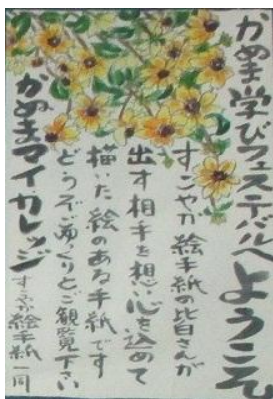 かぬま学びフェスティバルへようこそ
すこやか絵手紙の皆さんが
出す相手を想い心を込めて
描いた絵のある手紙です
どうぞごゆっくりとご観覧下さい
かぬまマイカレッジ
すこやか絵手紙一同